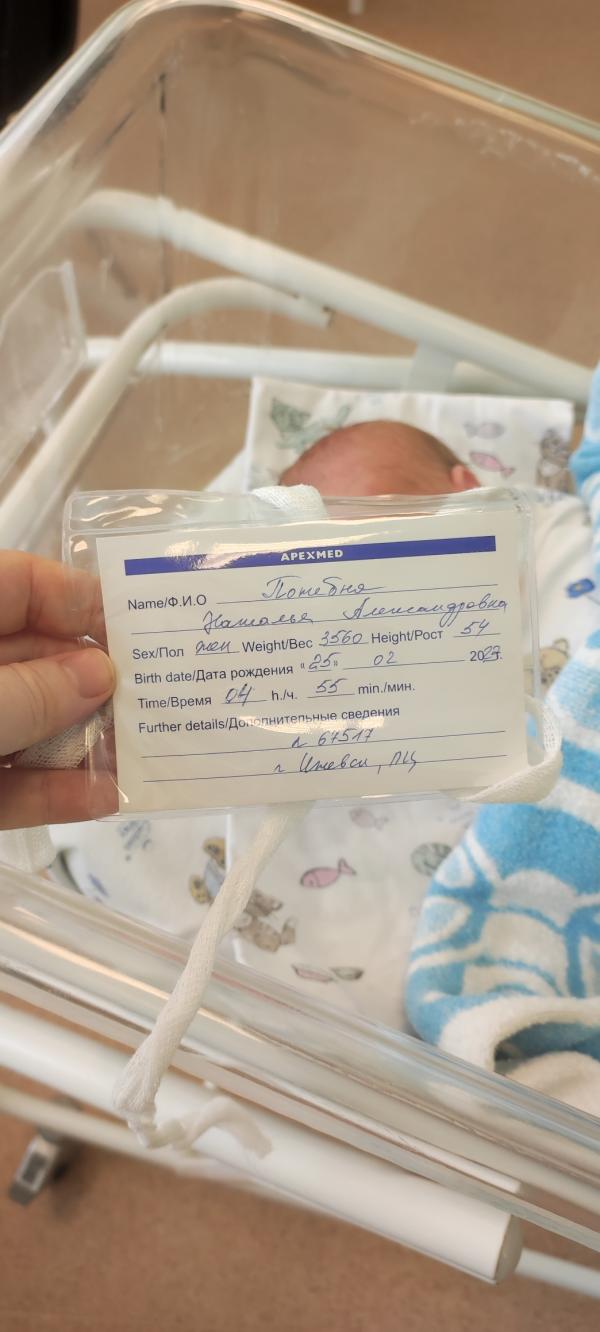 APEXMED
Name/Ф.И.О Потебня
Наталья Александровна
Sex/Пол жен Weight/Вес 3560 Height/Рост 54
Birth date/Дата рождения «25» 02 2023.
Time/Время 04 h./ч. 55 min./мин.
Further details/Дополнительные сведения
67517
г Ижевск, ПЦ